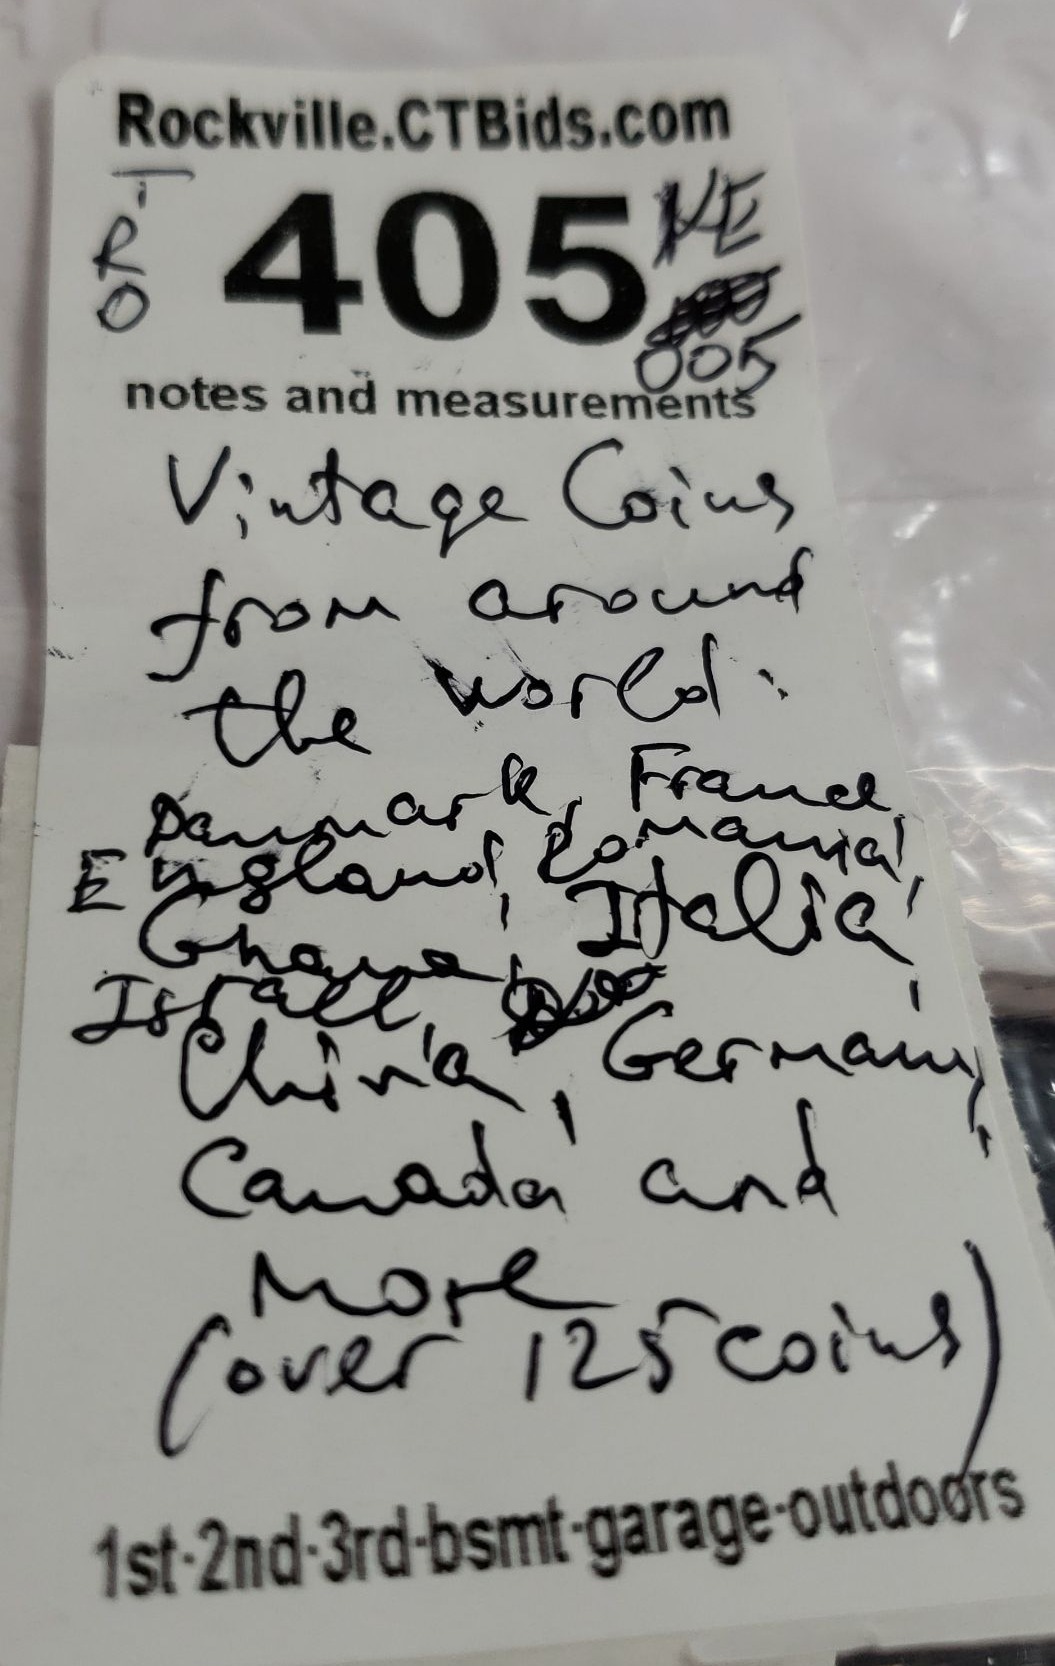 Rockville.CTBids.com
TRO
405
KE
005
notes and measurements
Vintage Coins
from around
the world:
Danmark, France,
England, Romania,
Ghana, Italia,
Israel,
China, Germany,
Canada and
More
(over 125 coins)
1st-2nd-3rd-bsmt-garage-outdoors